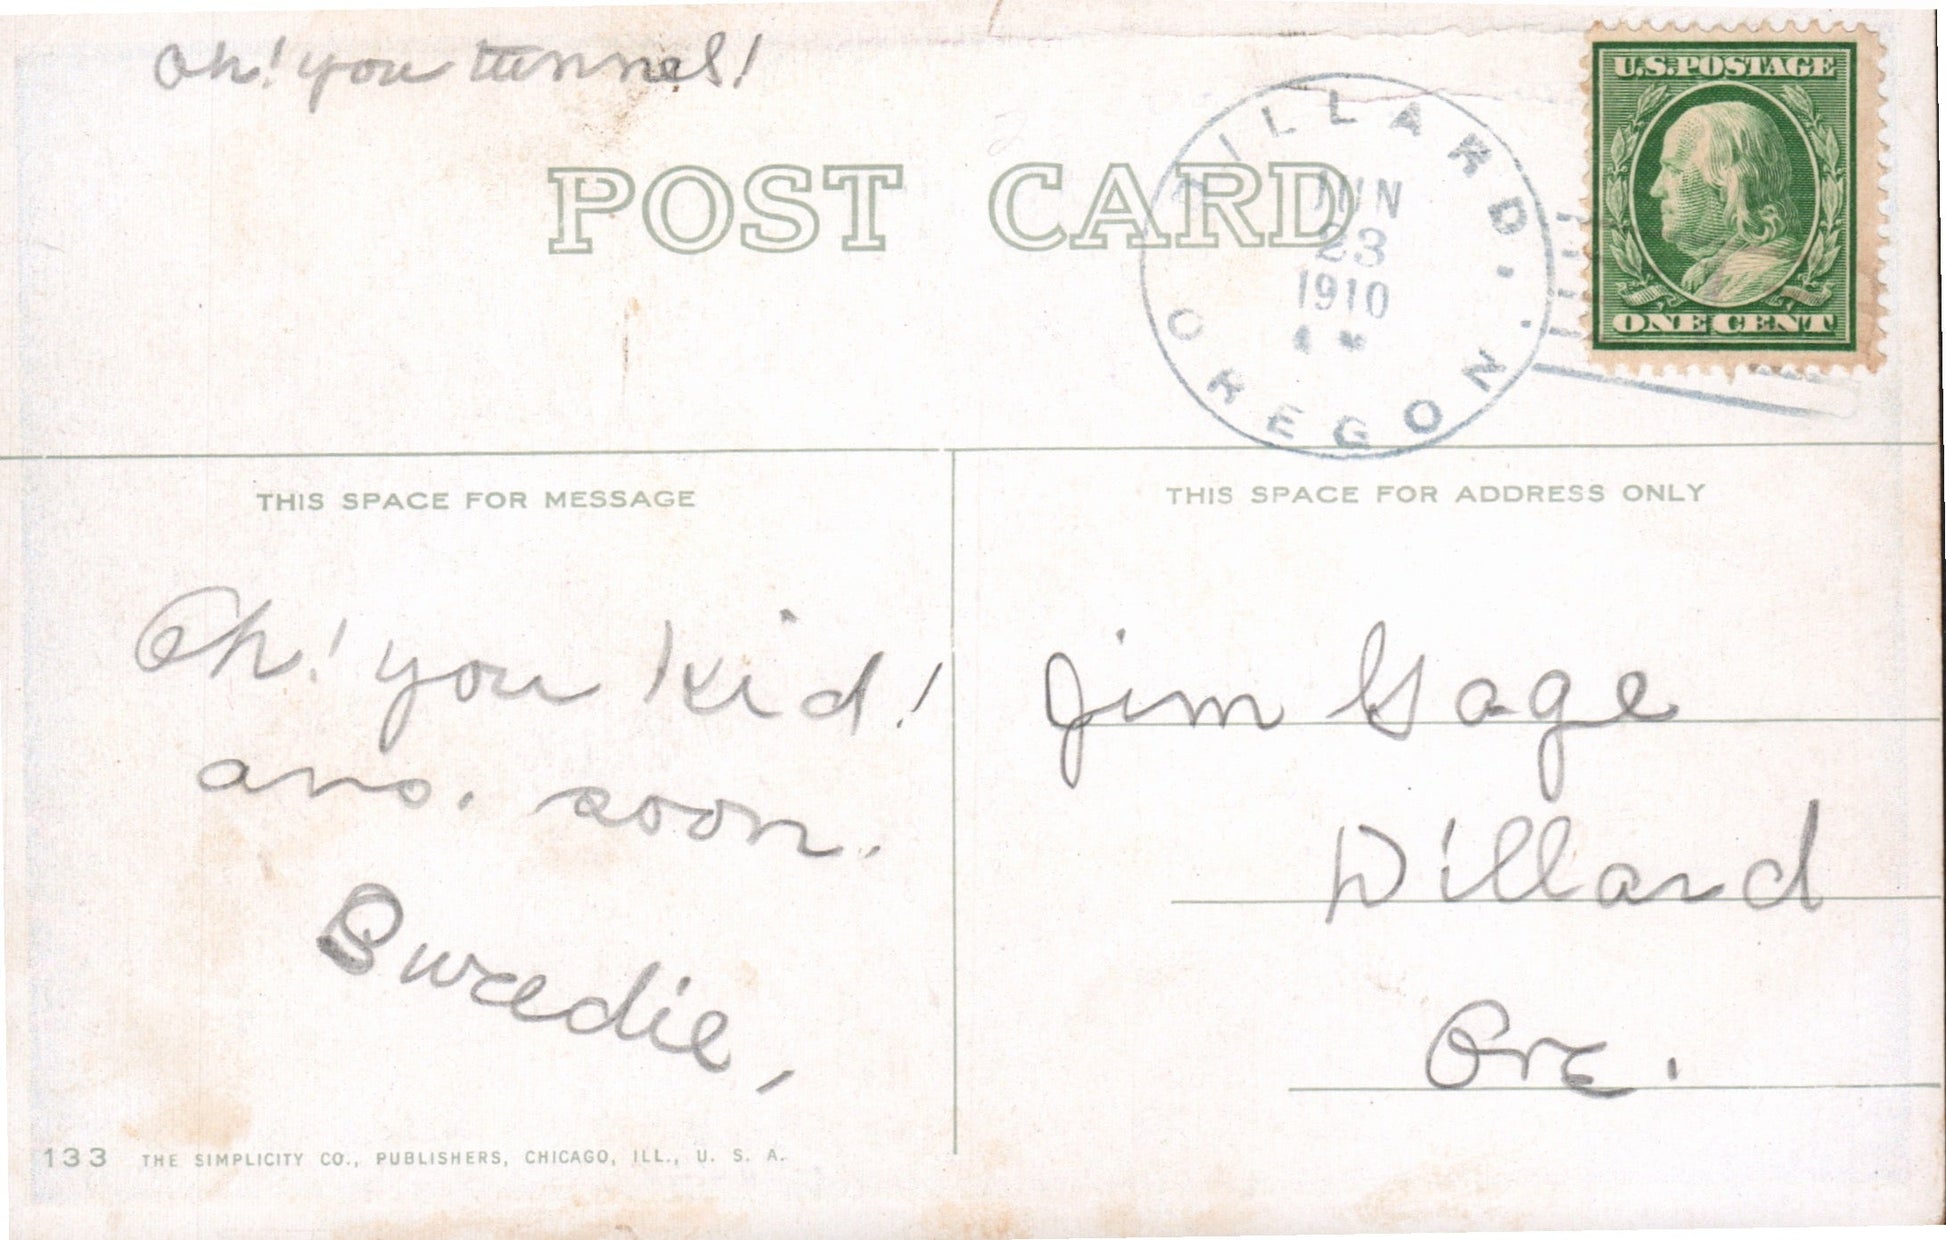 Oh! you tunnel!
U.S. POSTAGE
ONE CENT
DILLARD.
JUN
23
1910
OREGON
POST CARD
THIS SPACE FOR MESSAGE
Oh! you kid!
ans. soon.
Sweedie,
THIS SPACE FOR ADDRESS ONLY
Jim Gage
Dillard
Ore.
133 THE SIMPLICITY CO., PUBLISHERS, CHICAGO, ILL., U. S. A.